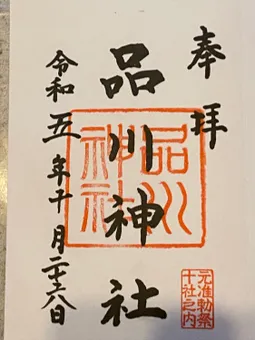 奉拝
品川神社
令和五年十一月二十八日
品川神社
元准勅祭
十社之内